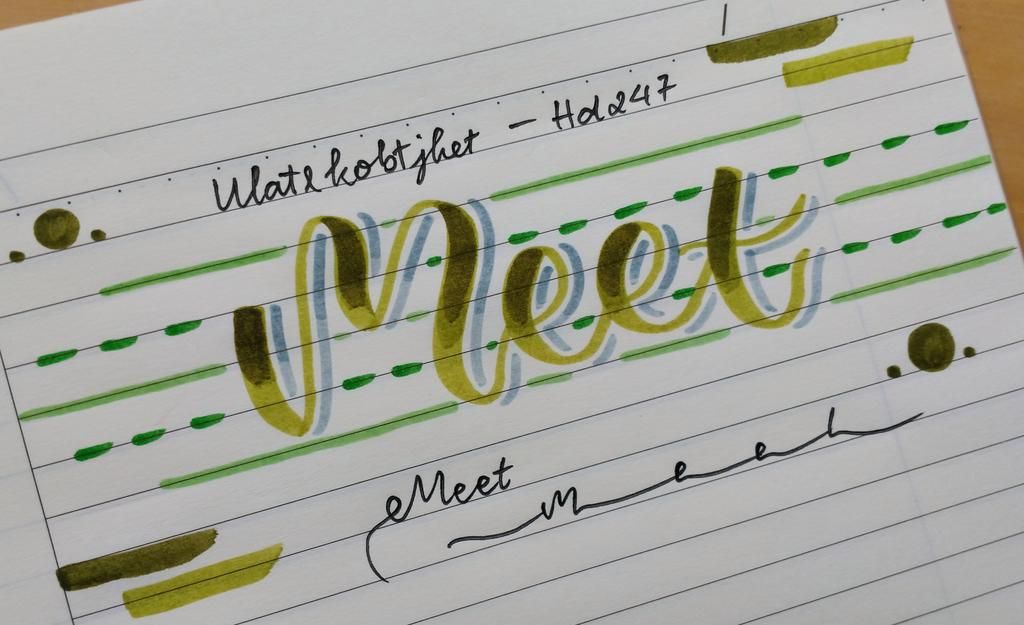 Ulatekobtjhet - Hd247
Meet
Meet
Meeh